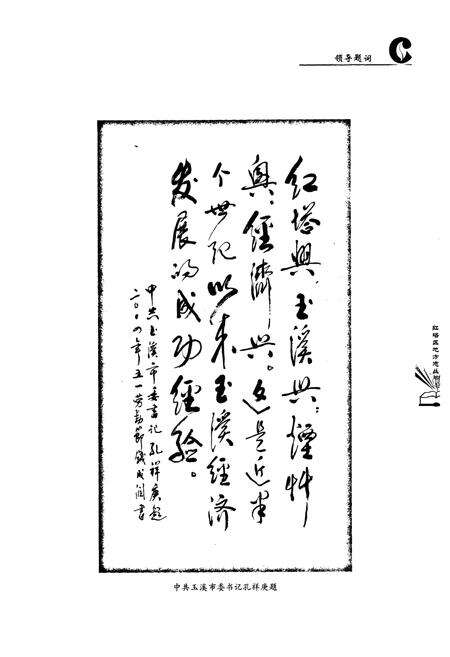 领导题词
红塔興，玉溪興；煙草
興，經濟興。这是近半
个世纪以来玉溪經济
发展的成功經验。
中共玉溪市委书记孔祥庚题
二〇〇四年五一劳动節钱成润書
红塔区地方志丛书
中共玉溪市委书记孔祥庚题